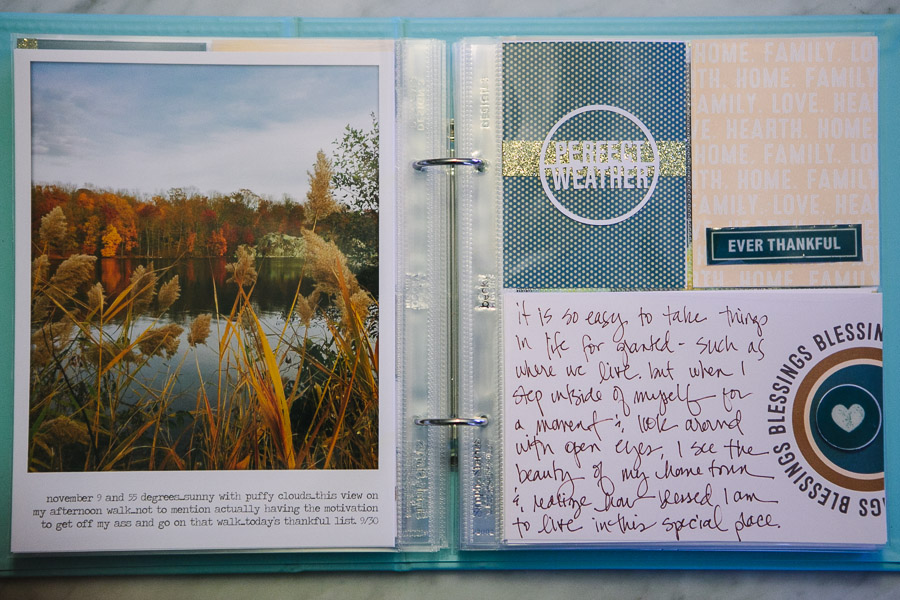 november 9 and 55 degrees...sunny with puffy clouds...this view on
my afternoon walk...not to mention actually having the motivation
to get off my ass and go on that walk...today's thankful list. 9/30
PERFECT
WEATHER
HOME. FAMILY. LO
TH. HOME. FAMILY
AMILY. LOVE. HEA
E. HEARTH. HOME.
HOME. FAMILY. LO
TH. HOME. FAMILY
AMILY. LOVE. HEA
EVER THANKFUL
it is so easy to take things
in life for granted - such as
where we live. but when I
step outside of myself for
a moment & look around
with open eyes, I see the
beauty of my home town
& realize how blessed I am
to live in this special place.
BLESSINGS BLESSINGS BLESSINGS